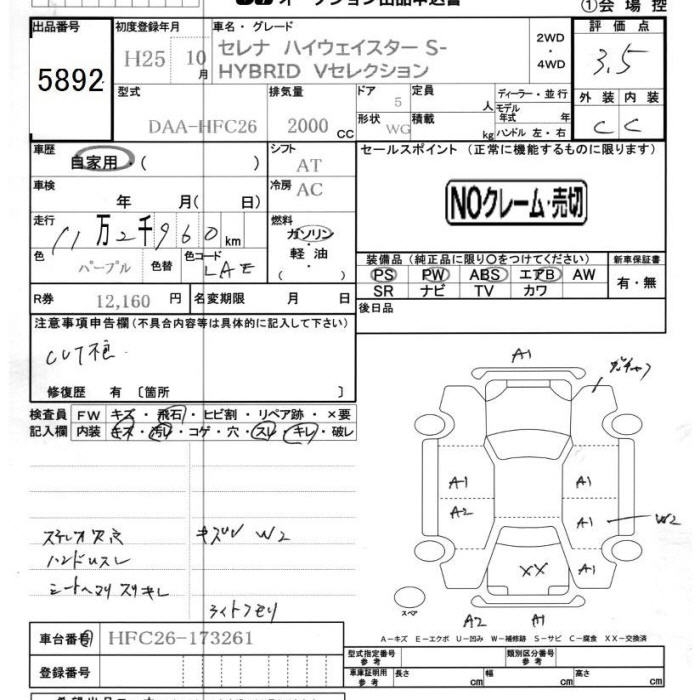 オークション出品申込書
①会場控
出品番号
5892
初度登録年月
H25 10月
車名・グレード
セレナ ハイウェイスター S-
HYBRID Vセレクション
2WD
・
4WD
評価点
3.5
外装 内装
C C
型式
DAA-HFC26
排気量
2000 CC
ドア 5
定員 人
ディーラー・並行
モデル年式 年
形状 WG
積載 kg
ハンドル 左・右
車歴
自家用・( )
シフト
AT
セールスポイント (正常に機能するものに限ります)
NOクレーム・売切
車検
年 月( 日)
冷房 AC
走行
11万2千960km
燃料
ガソリン
・
軽油
・
( )
色
パープル
色替
色コード
LAE
装備品 (純正品に限り○をつけてください)
新車保証書
PS PW ABS エアB AW
SR ナビ TV カワ
有・無
R券 12,160 円
名変期限 月 日
後日品
注意事項申告欄(不具合内容等は具体的に記入して下さい)
修復歴 有 〔箇所 〕
検査員
記入欄
FW キズ・飛石・ヒビ割・リペア跡・×要
内装 キズ・汚レ・コゲ・穴・スレ・キレ・破レ
ハンドルスレ
キズUV W2
ライトクモリ
A1
A1
A1
A2
A1
W2
XX
A1
スペア
A2
A1
A-キズ E-エクボ U-凹み W-補修跡 S-サビ C-腐食 XX-交換済
車台番号
HFC26-173261
登録番号
型式指定番号
参考
類別区分番号
参考
車庫証明用
参考
長さ cm
幅 cm
高さ cm